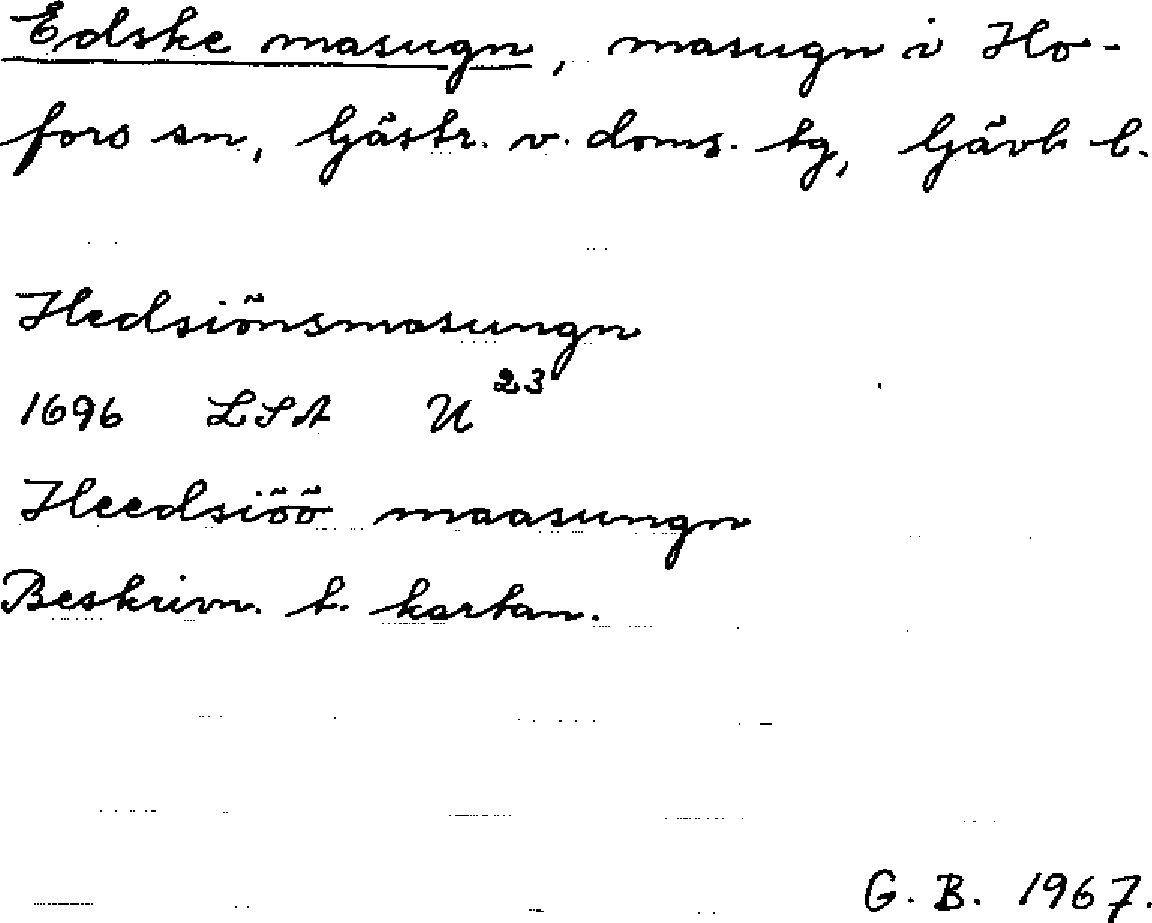 Edske masugn, masugn i Ho-
fors sn, Gästr. v. doms. tg, Gävb l.
Hedsiönsmasungn
1696 LSA U 23
Heedsiöö maasungn
Beskrivn. t. kartan.
G. B. 1967.